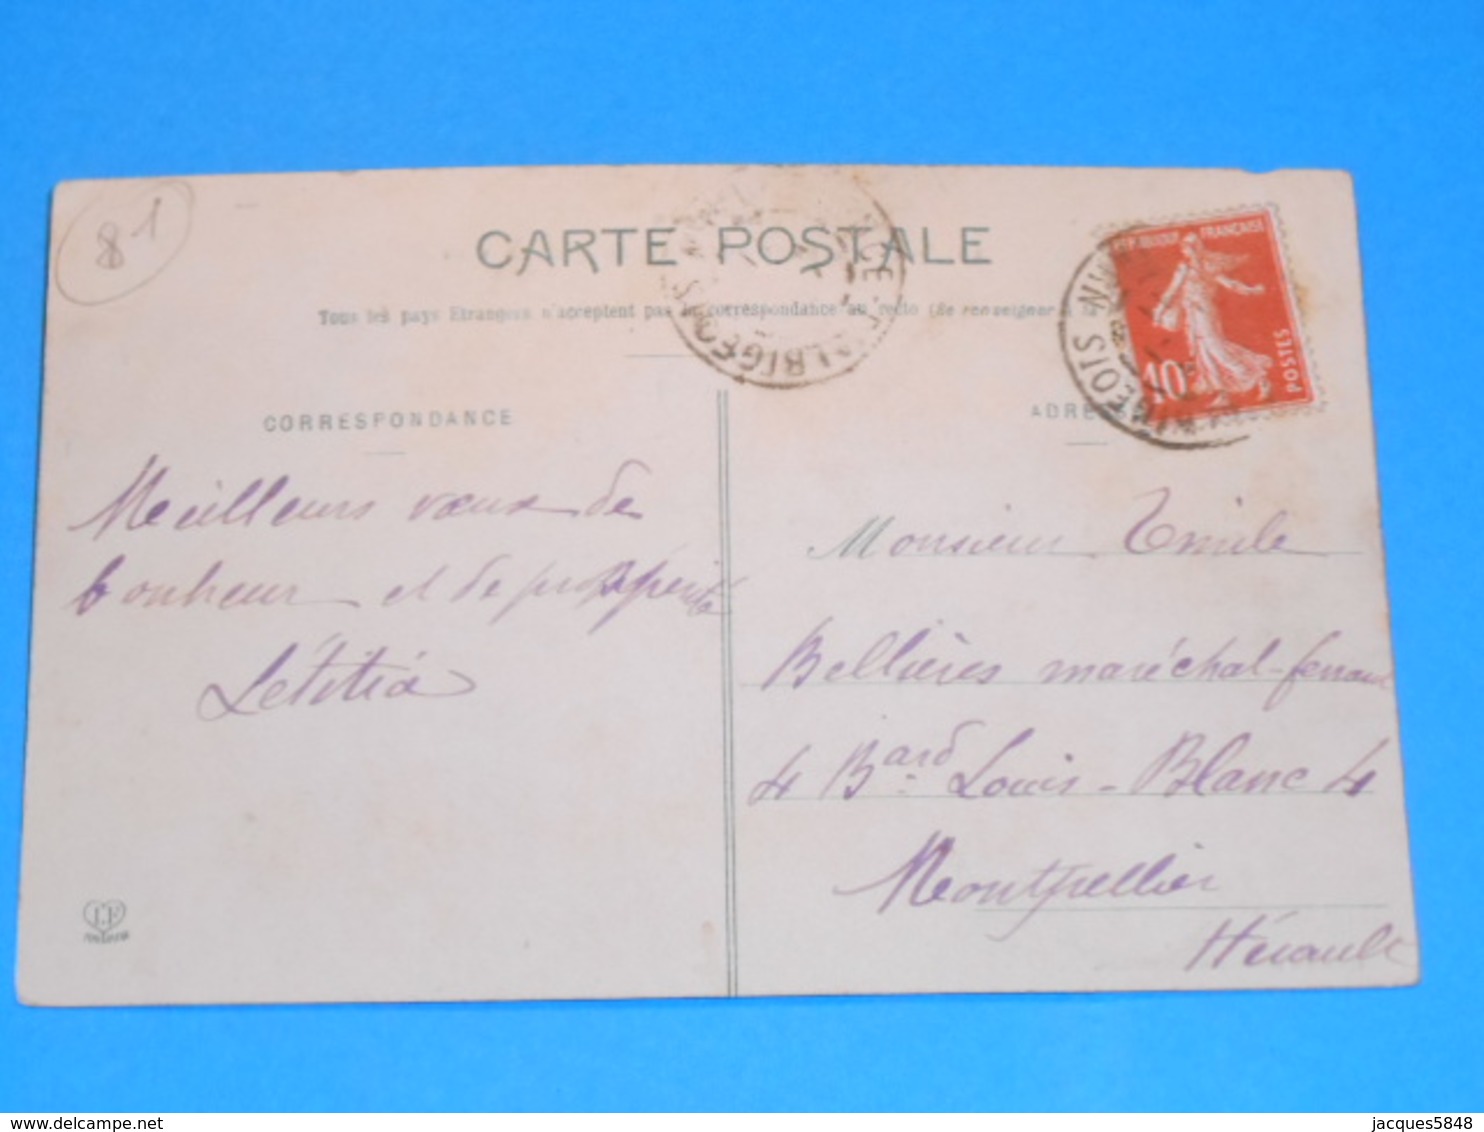 81
CARTE POSTALE
Tous les pays Etrangers n'acceptent pas la correspondance au recto (Se renseigner à
CORRESPONDANCE
ADRESSE
FRANÇAISE
10
POSTES
ALBIGEOIS
Meilleurs vœux de
bonheur et de prospérité
Létitia
Monsieur Emile
Bellières maréchal-ferrant
4 Bard Louis-Blanc 4
Montpellier
Hérault
delcampe.net
jacques5848